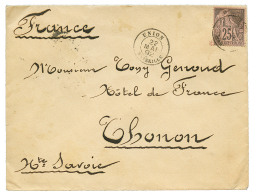 France
UNION
22
MAI
25
Monsieur Tony Genoud
Hôtel de France
Thonon
Hte Savoie